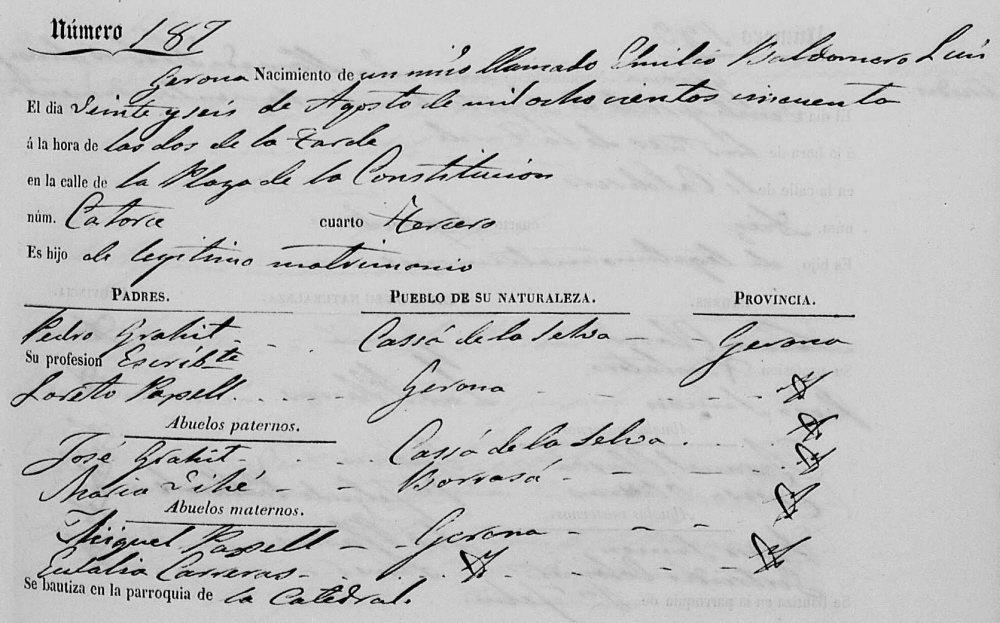 Número 187
Gerona Nacimiento de un niño llamado Emilio Baldomero Luis
El dia Veinte y seis de Agosto de mil ocho cientos cincuenta
á la hora de las dos de la Tarde
en la calle de la Plaza de la Constitucion
núm. Catorce cuarto Tercero
Es hijo de legitimo matrimonio
PADRES. PUEBLO DE SU NATURALEZA. PROVINCIA.
Pedro Grahit Cassá de la Selva Gerona
Su profesion Escribte
Loreto Papell Gerona
Abuelos paternos.
José Grahit Cassá de la Selva
Maria Borrasá
Abuelos maternos.
Miguel Papell Gerona
Eulalia Carreras
Se bautiza en la parroquia de la Catedral.